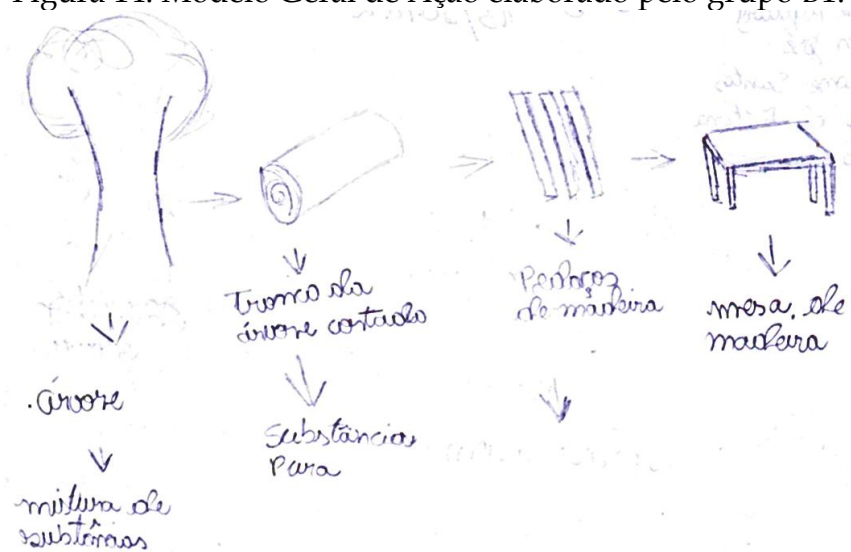 Figura 14. Modelo Geral de Ação elaborado pelo grupo
Tronco da
árvore cortado
Pedaços
de madeira
mesa, de
madeira
.árvore
Substância
Pura
mistura de
substâncias